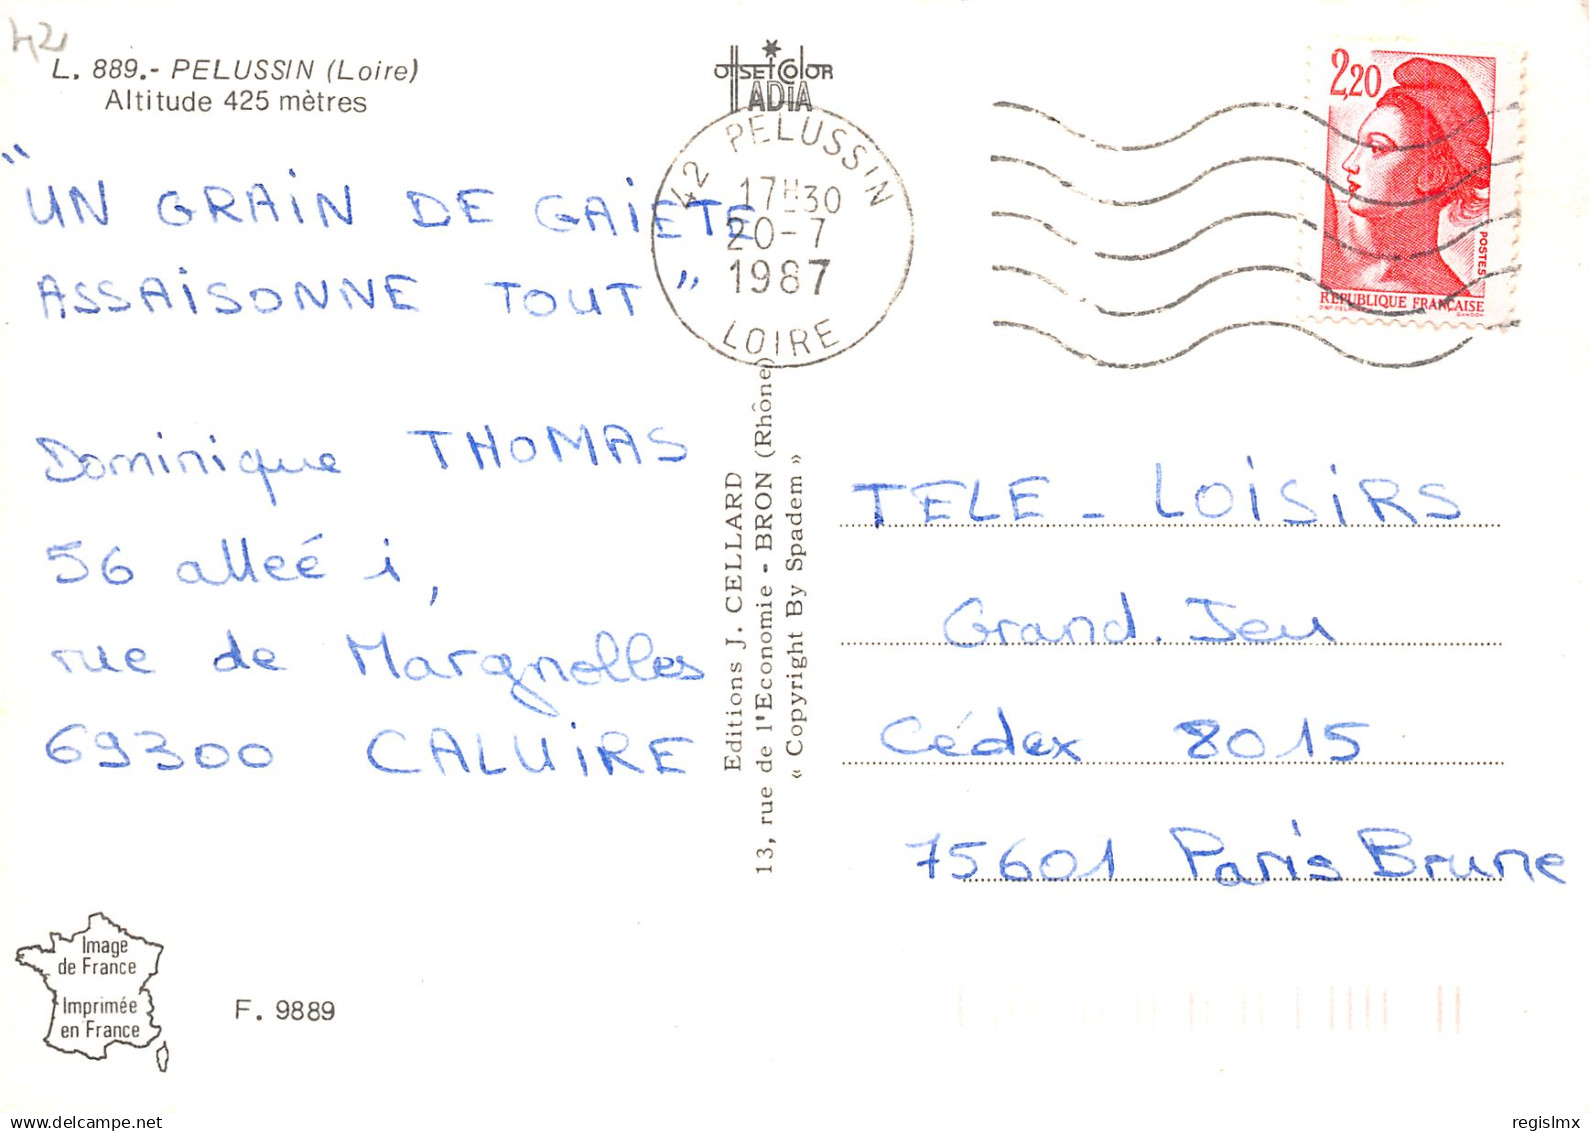 42
L. 889.- PELUSSIN (Loire)
Altitude 425 mètres
OffSET COLOR
ADIA
42 PELUSSIN
17H30
20-7
1987
LOIRE
2,20
POSTES
REPUBLIQUE FRANÇAISE
GANDON
"UN GRAIN DE GAIETE
ASSAISONNE TOUT"
Dominique THOMAS
56 alleé i,
rue de Margnolles
69300 CALUIRE
Editions J. CELLARD
13, rue de l'Economie - BRON (Rhône)
« Copyright By Spadem »
TELE - LOISIRS
Grand. Jeu
Cédex 8015
75601 Paris Brune
Image
de France
Imprimée
en France
F. 9889
regislmx